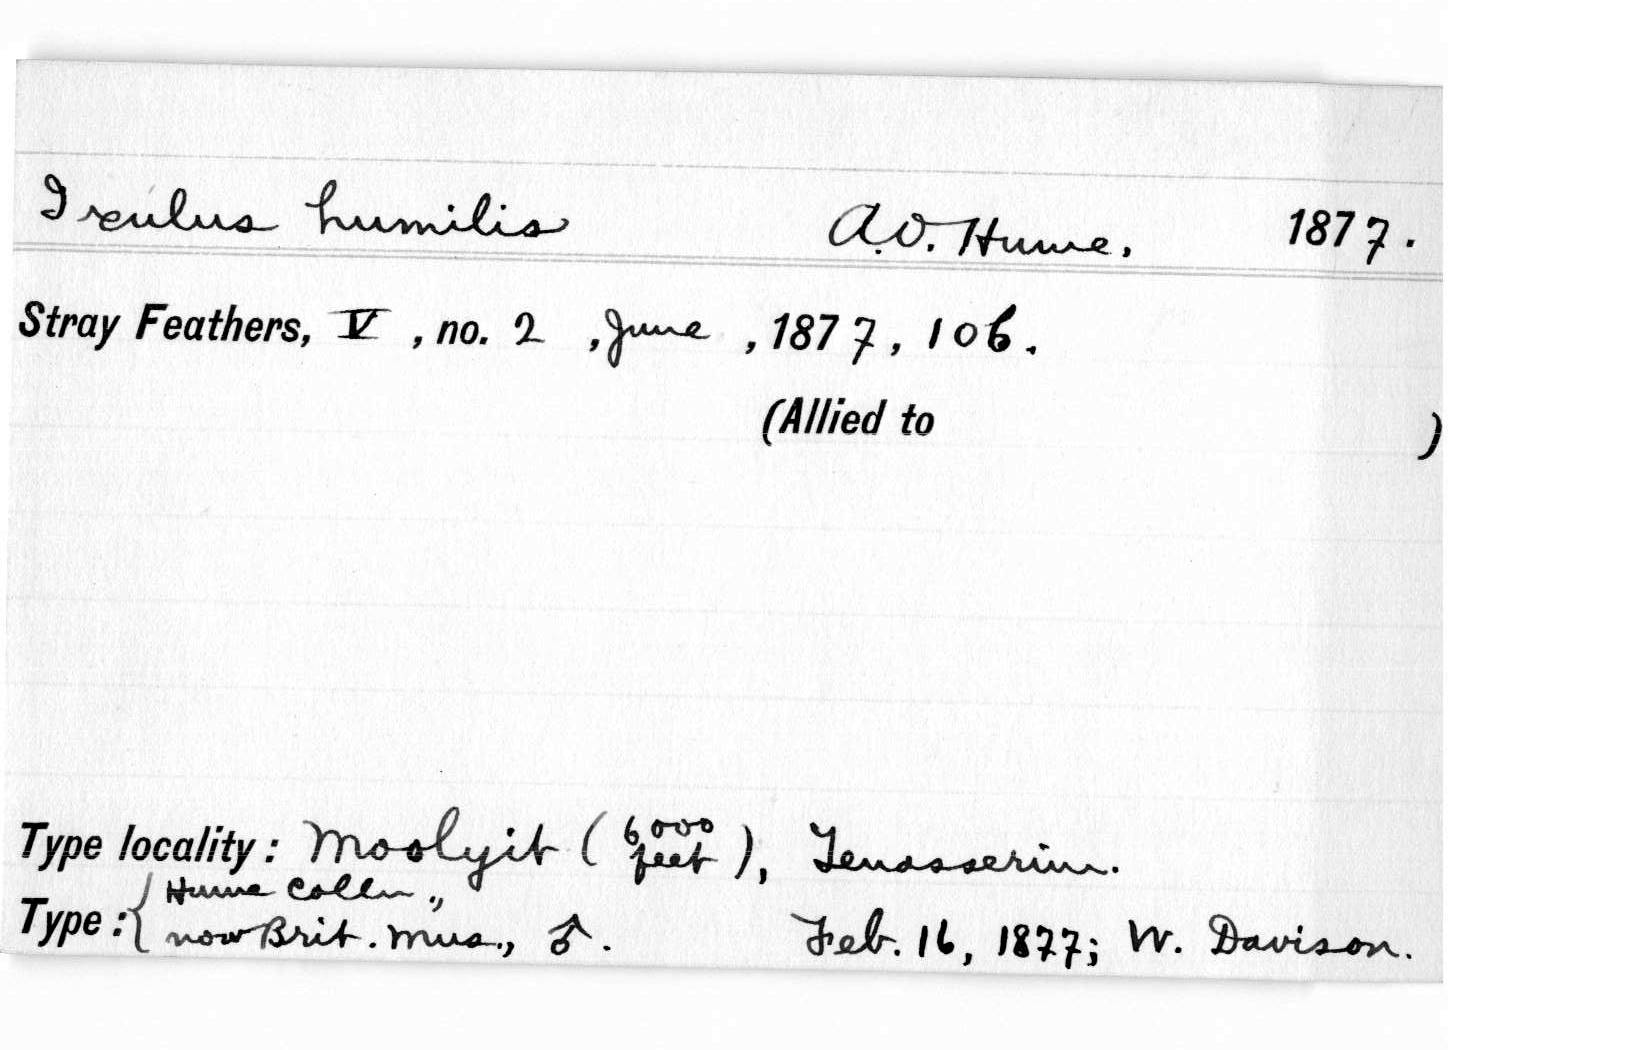 Ixulus humilis A.O. Hume. 1877.
Stray Feathers, V, no. 2, June, 1877, 106.
(Allied to )
Type locality: Moolyit (6000 feet), Tenasserim.
Type: { Hume Colln., now Brit. Mus., ♂. Feb. 16, 1877; W. Davison.